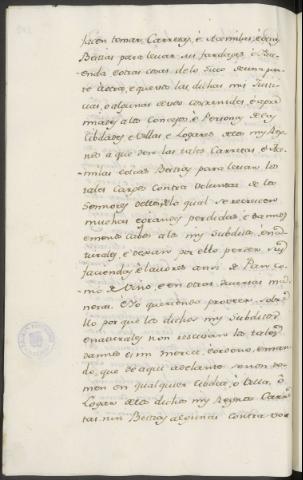 facen tomar, Carretas, é Acemilas, é otras
Bestias para levar sus fardages é facienda
é otras cosas de lo suyo de una parte
á otra, é que vos las dichas mis Justicias,
ó algunas de vos costrenides, é apremiades
a los Concejos, é Personas de las
Cibdades é Villas é Logares de los mys Regnos
á que den las tales Carretas é Acemilas
é otras Bestias para levar los
tales Cargos contra voluntad de los
Señores dellas, de lo qual se recrecen
muchas é grandes perdidas, é daños
é menos cabos á los mys Subditos, é naturales,
é dexan por ello perder sus
faciendas é labores ansi de Pan, como
de Vino, é en otras diversas maneras.
é Yo queriendo proveer sobre
ello por que los dichos mys Subditos
é naturales non resciban los tales
daños es mi merced, é ordeno, é mando,
que de aquí adelante se non tomen
en qualquier Cibdad, ó Villa, ó
Logar de los dichos mys Regnos Carretas
nin Bestias algunas contra vo